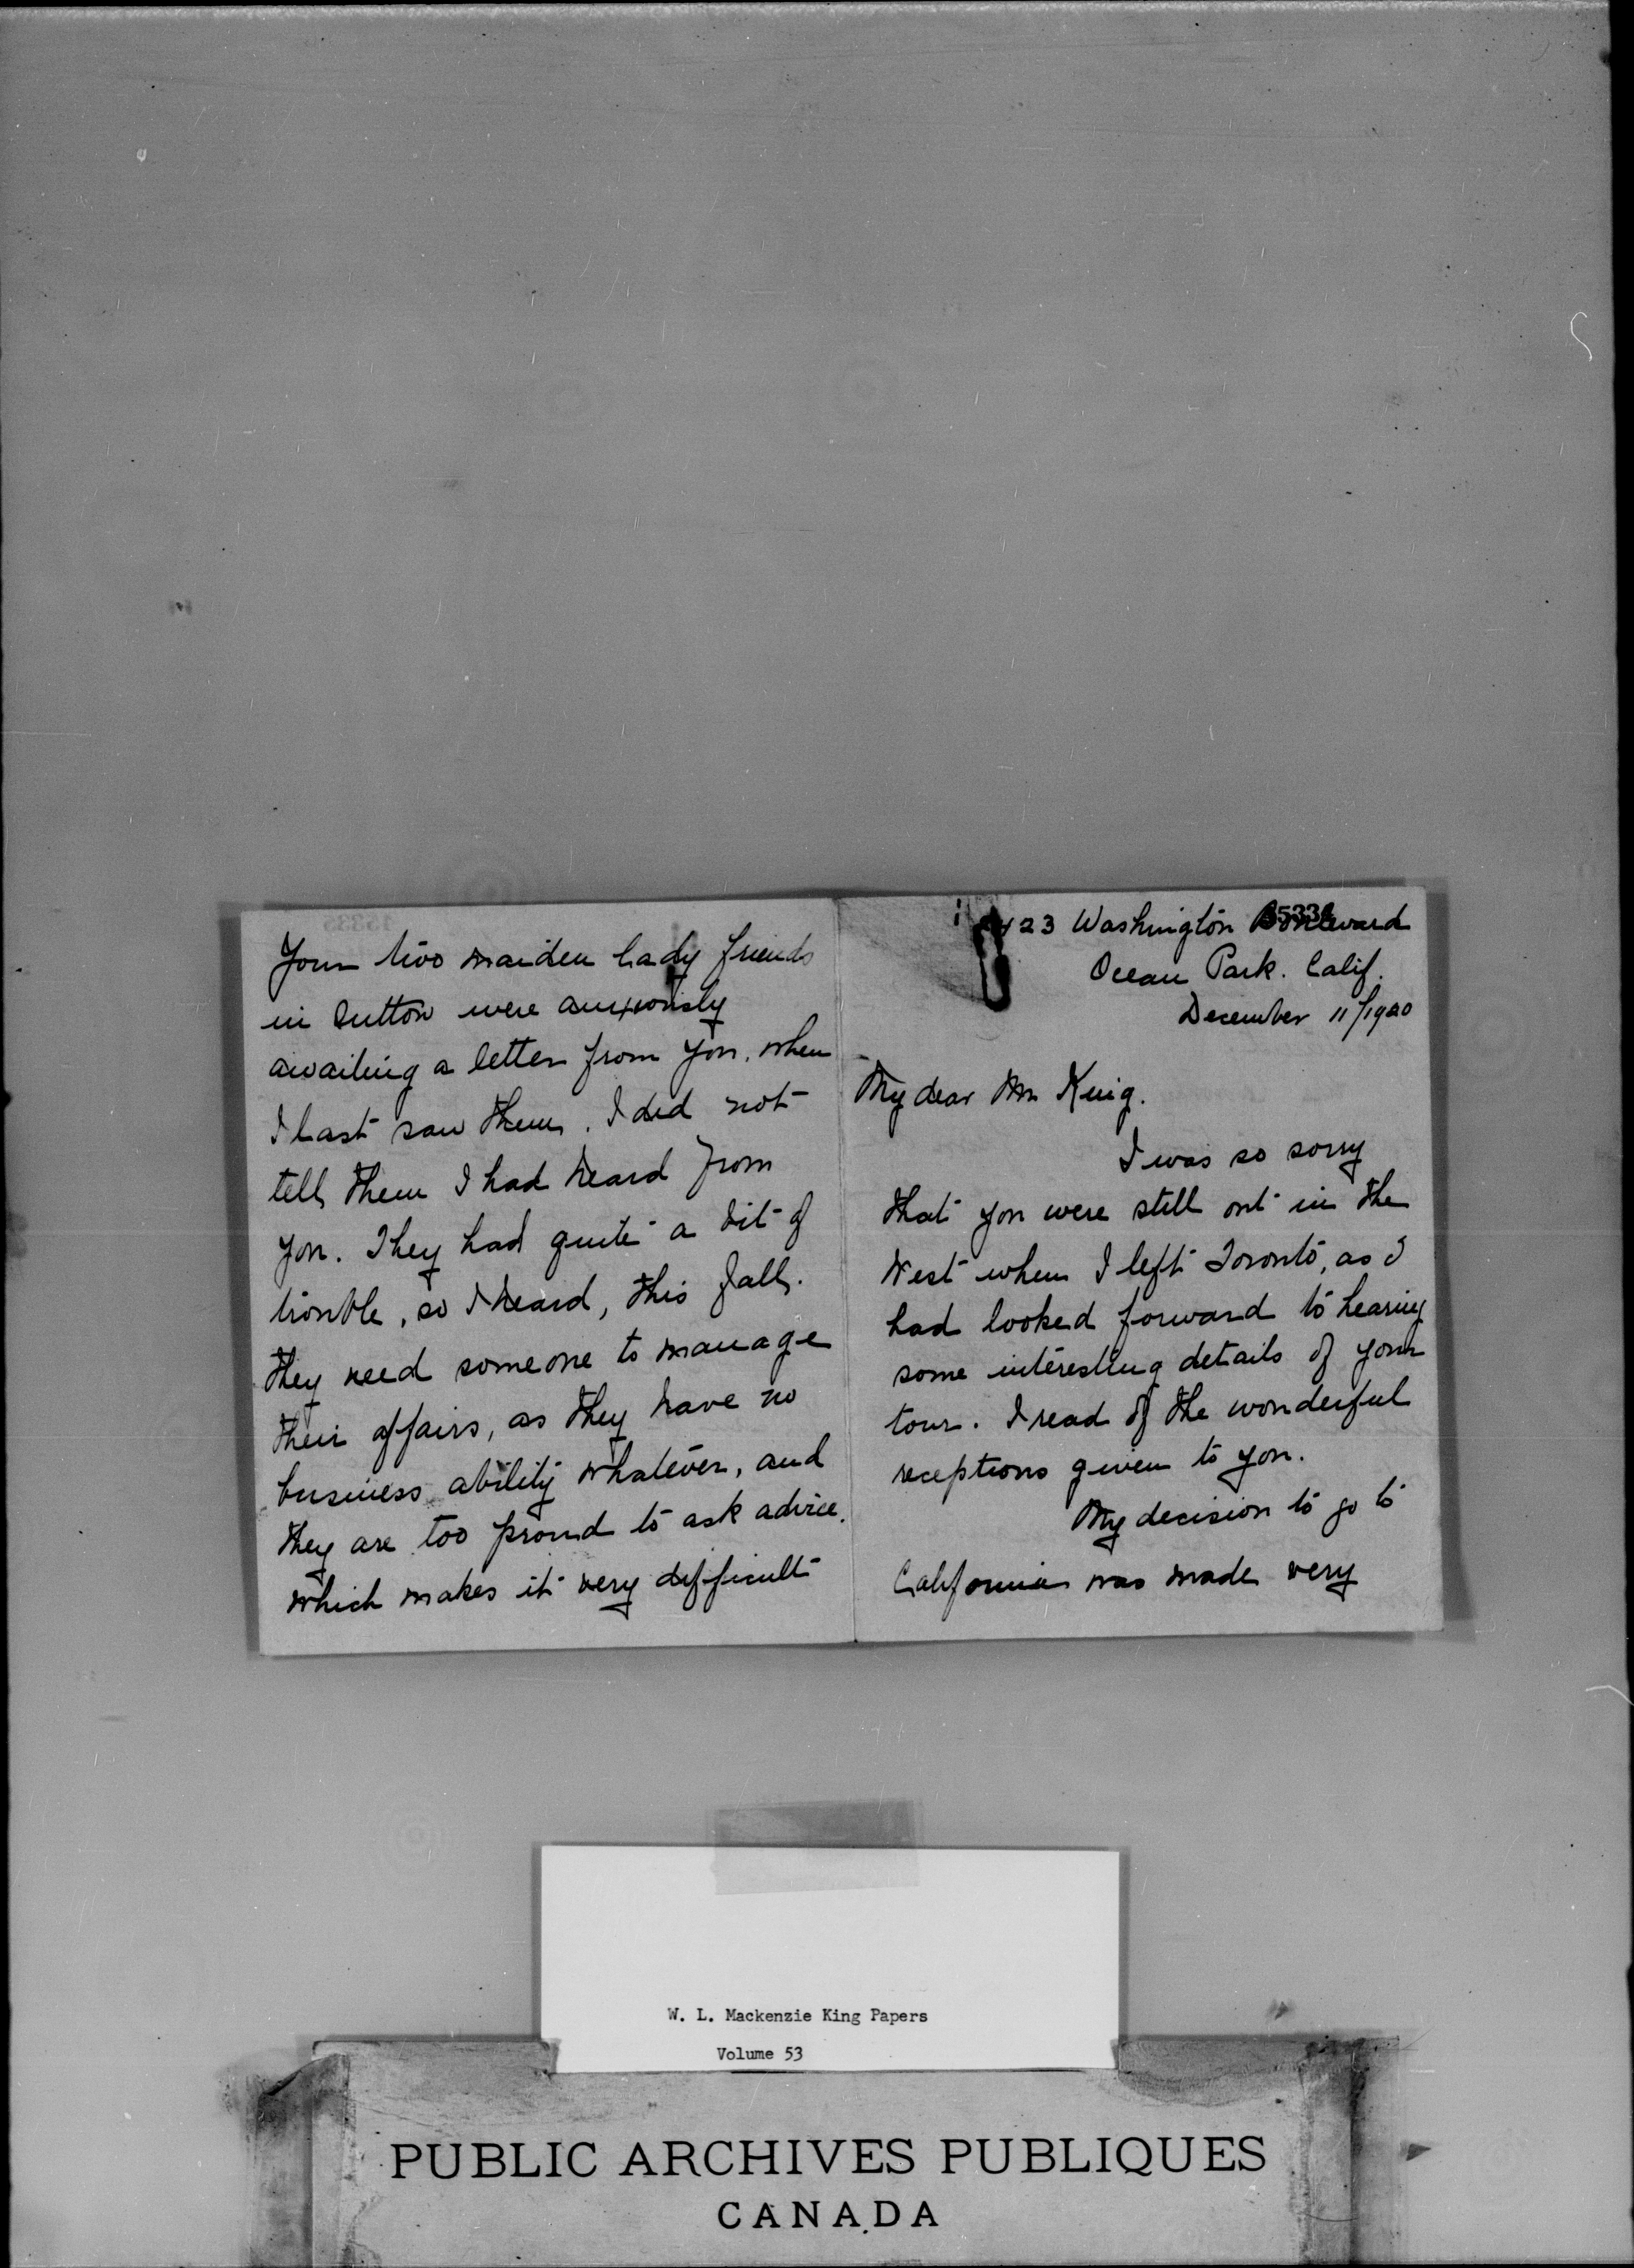 Your two maiden lady friends
in Sutton were anxiously
awaiting a letter from you, when
I last saw them. I did not
tell them I had heard from
you. They had quite a bit of
trouble, so I heard, this fall.
they need someone to manage
their affairs, as they have no
business ability whatever, and
they are too proud to ask advice.
which makes it very difficult
23 Washington Boulevard
Ocean Park. Calif.
December 11/1920
My dear Mr King.
I was so sorry
that you were still out in the
West when I left Toronto, as I
had looked forward to hearing
some interesting details of your
tour. I read of the wonderful
receptions given to you.
My decision to go to
California was made very
W. L. Mackenzie King Papers
Volume 53
PUBLIC ARCHIVES PUBLIQUES
CANADA